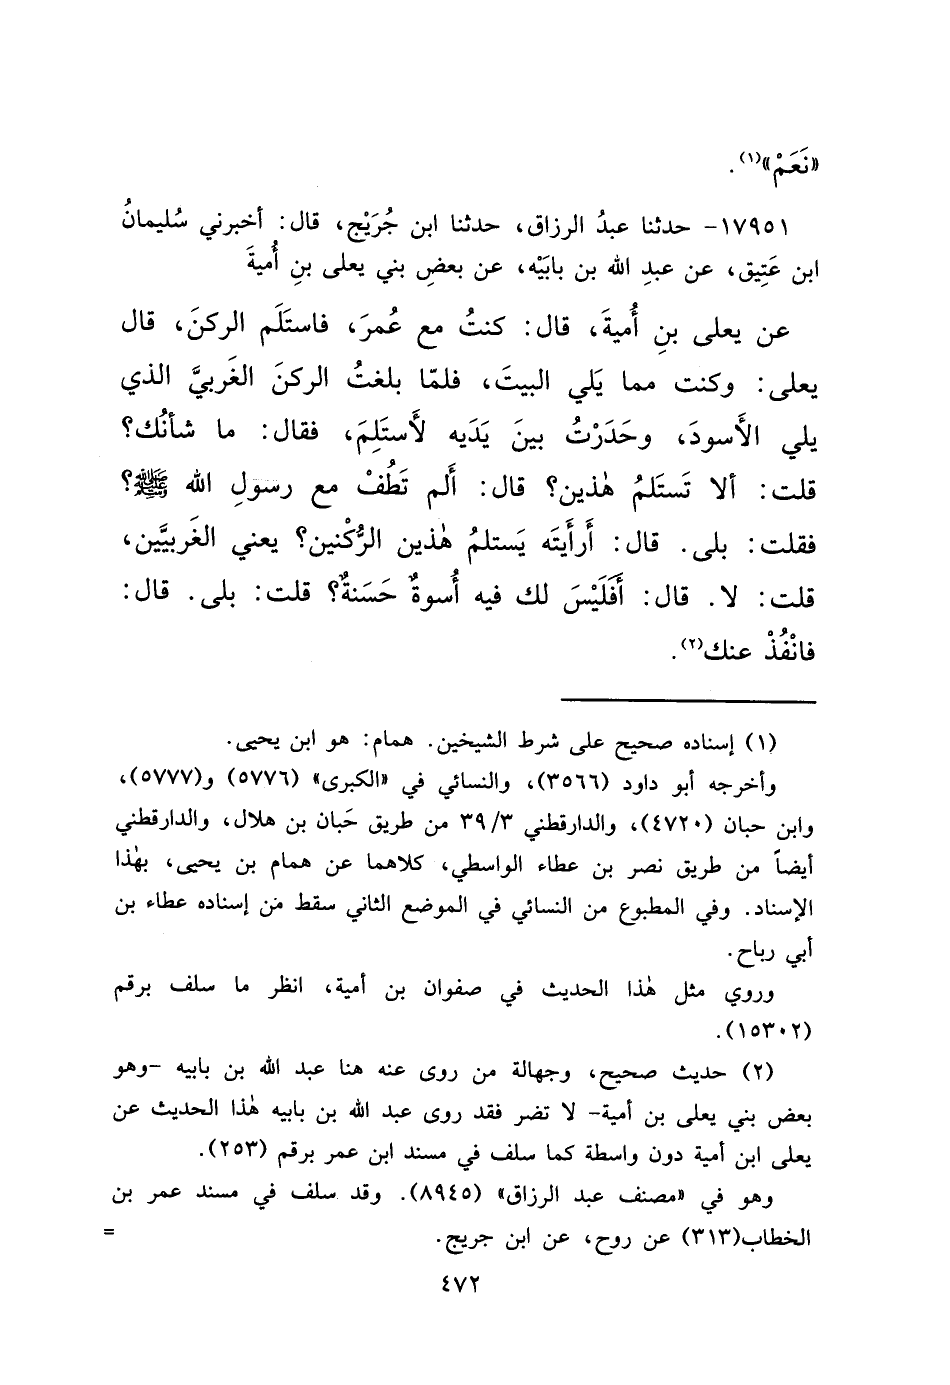 «نَعَمْ»(١).
١٧٩٥١- حدثنا عبدُ الرزاق، حدثنا ابن جُرَيْج، قال: أخبرني سُليمانُ
ابن عَتِيق، عن عبدِ الله بن بابَيْه، عن بعضِ بني يعلى بنِ أُميةَ
عن يعلى بنِ أُميةَ، قال: كنتُ مع عُمرَ، فاستَلَم الركنَ، قال
يعلى: وكنت مما يَلي البيتَ، فلمّا بلغتُ الركنَ الغَربيَّ الذي
يلي الأَسودَ، وحَدَرْتُ بينَ يَدَيه لأَستَلِمَ، فقال: ما شأنُك؟
قلت: ألا تَستَلمُ هٰذين؟ قال: أَلم تَطُفْ مع رسولِ الله ﷺ؟
فقلت: بلى. قال: أَرأَيتَه يَستلمُ هٰذين الرُّكْنين؟ يعني الغَربيَّين،
قلت: لا. قال: أَفَلَيْسَ لك فيه أُسوةٌ حَسَنةٌ؟ قلت: بلى. قال:
فانْفُذْ عنك(٢).
(١) إسناده صحيح على شرط الشيخين. همام: هو ابن يحيى.
وأخرجه أبو داود (٣٥٦٦)، والنسائي في «الكبرى» (٥٧٧٦) و(٥٧٧٧)،
وابن حبان (٤٧٢٠)، والدارقطني ٣٩/٣ من طريق حَبان بن هلال، والدارقطني
أيضاً من طريق نصر بن عطاء الواسطي، كلاهما عن همام بن يحيى، بهٰذا
الإسناد. وفي المطبوع من النسائي في الموضع الثاني سقط من إسناده عطاء بن
أبي رباح.
وروي مثل هٰذا الحديث في صفوان بن أمية، انظر ما سلف برقم
(١٥٣٠٢).
(٢) حديث صحيح، وجهالة من روى عنه هنا عبد الله بن بابيه -وهو
بعض بني يعلى بن أمية- لا تضر فقد روى عبد الله بن بابيه هٰذا الحديث عن
يعلى ابن أمية دون واسطة كما سلف في مسند ابن عمر برقم (٢٥٣).
وهو في «مصنف عبد الرزاق» (٨٩٤٥). وقد سلف في مسند عمر بن
الخطاب(٣١٣) عن روح، عن ابن جريج. =
٤٧٢